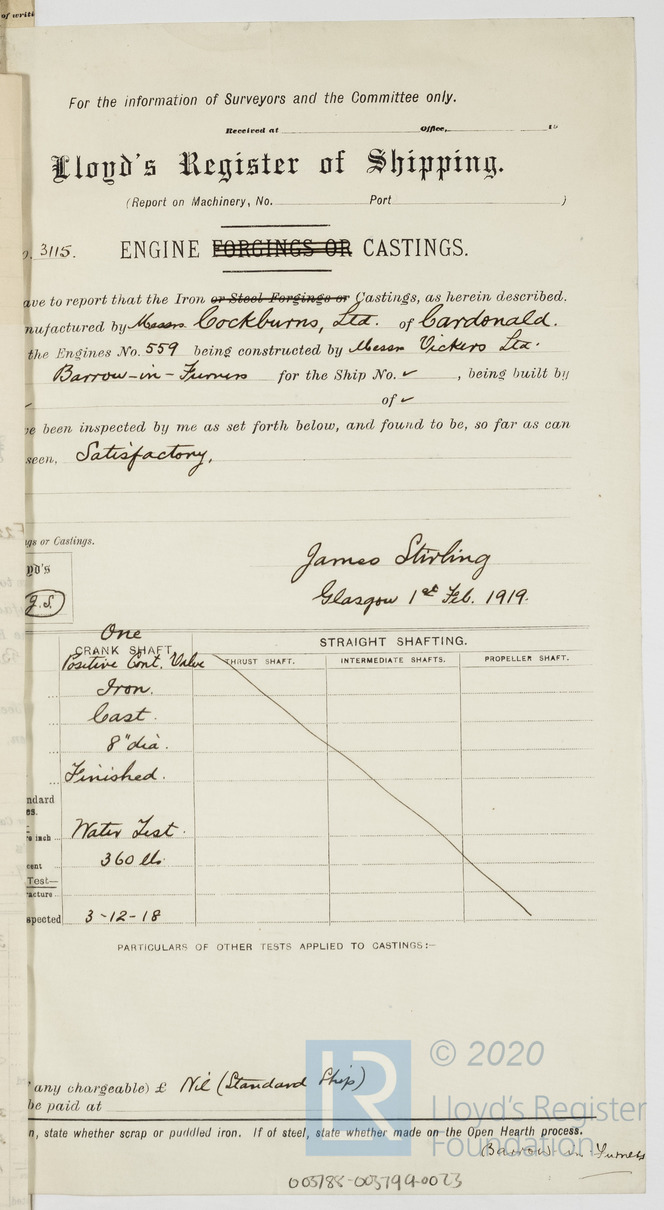 of writi
For the information of Surveyors and the Committee only.
Received at Office, 19
Lloyd's Register of Shipping.
(Report on Machinery, No. Port )
o. 3115. ENGINE FORGINGS OR CASTINGS.
ave to report that the Iron or Steel Forgings or Castings, as herein described.
nufactured by Messrs Cockburns, Ltd. of Cardonald.
the Engines No. 559 being constructed by Messrs Vickers Ltd.
Barrow-in-Furness for the Ship No. ✓ , being built by
✓ of ✓
ve been inspected by me as set forth below, and found to be, so far as can
seen, Satisfactory,
ngs or Castings.
yd's
J.S.
James Stirling
Glasgow 1st Feb. 1919.
One
CRANK SHAFT. STRAIGHT SHAFTING.
Positive Cont. Valve THRUST SHAFT. INTERMEDIATE SHAFTS. PROPELLER SHAFT.
Iron.
Cast.
8" dia.
Finished.
ndard
es.
re inch Water Test.
cent 360 lbs
Test—
acture
spected 3-12-18
PARTICULARS OF OTHER TESTS APPLIED TO CASTINGS:—
any chargeable) £ Nil (Standard Ship)
be paid at
n, state whether scrap or puddled iron. If of steel, state whether made on the Open Hearth process.
(Barrow-in-Furness
003788-003794-0023
LR
© 2020
Lloyd's Register
Foundation